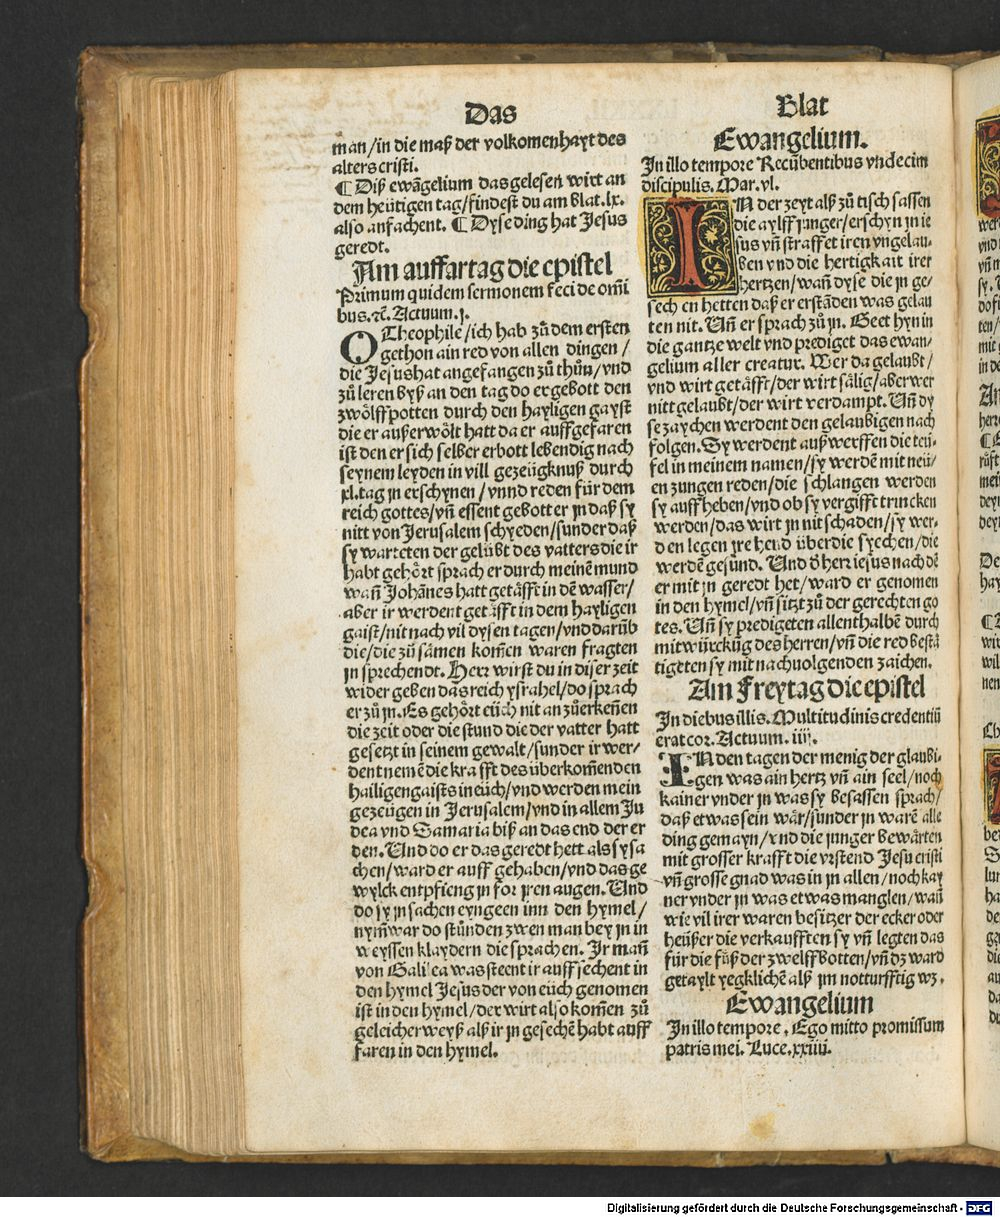 Das
man/in die maß der volkomenhayt des
alters cristi.
¶ Diß ewãgelium das gelesen wirt an
dem heütigen tag/findest du am blat.lx.
also anfachent. ¶ Dyse ding hat Jesus
geredt.
Am auffartag die epistel
Primum quidem sermonem feci de om̃i
bus.ꝛc̃. Actuum.j.
O Theophile/ich hab zů dem ersten
gethon ain red von allen dingen/
die Jesus hat angefangen zů thůn/vnd
zů leren byß an den tag do er gebott den
zwölffpotten durch den hayligen gayst
die er außerwölt hatt da er auffgefaren
ist den er sich selber erbott lebendig nach
seynem leyden in vill gezeügknuß durch
xl.tag jn erschynen/vnnd reden für dem
reich gottes/vñ essent gebott er jn daß sy
nitt von Jerusalem schyeden/sunder daß
sy warteten der gelübt des vatters die ir
habt gehört sprach er durch meinẽ mund
wañ Johãnes hatt getäfft in dẽ wasser/
aber ir werdent getäfft in dem hayligen
gaist/nit nach vil dysen tagen/vnd darũb
die/die zů sãmen kom̃en waren fragten
jn sprechendt. Herr wirst du in diser zeit
wider geben das reich ysrahel/do sprach
er zů jn. Es gehört eüch nit an zů erkeñen
die zeit oder die stund die der vatter hatt
gesetzt in seinem gewalt/sunder ir wer-
dent nemẽ die krafft des überkom̃enden
hailigen gaists in eüch/vnd werden mein
gezeügen in Jerusalem/vnd in allem Ju
dea vnd Samaria biß an das end der er
den. Und do er das geredt hett als sy sa
chen/ward er auff gehaben/vnd das ge
wylck entpfieng jn for jren augen. Und
do sy jn sachen eyngeen inn den hymel/
nym̃war do stůnden zwen man bey jn in
weyssen klaydern die sprachen. Ir mañ
von Galilea was steent ir auff sechent in
den hymel Jesus der von eüch genomen
ist in den hymel/der wirt also kom̃en zů
geleicher weyß alß ir jn gesechẽ habt auff
faren in den hymel.
Blat
Ewangelium.
In illo tempore Recũbentibus vndecim
discipulis. Mar. vl.
IN der zeyt alß zů tisch sassen
die aylff junger/erschyn jn ie
sus vñ straffet iren vngelau-
ben vnd die hertigkait irer
hertzen/wañ dyse die jn ge-
sechen hetten daß er erstãden was gelau
ten nit. Uñ er sprach zů jn. Geet hyn in
die gantze welt vnd prediget das ewan-
gelium aller creatur. Wer da gelaubt/
vnd wirt getäfft/der wirt sälig/aber wer
nitt gelaubt/der wirt verdampt. Uñ dy
se zaychen werdent den gelaubigen nach
folgen. Sy werdent auß werffen die teü/
fel in meinem namen/sy werdẽ mit neü/
en zungen reden/die schlangen werden
sy auff heben/vnd ob sy vergifft trincken
werden/das wirt jn nit schaden/sy wer-
den legen jre hend über die syechen/die
werdẽ gesund. Und d̕ herr iesus nach dẽ
er mit jn geredt het/ward er genomen
in den hymel/vñ sitzt zů der gerechten go
tes. Uñ sy predigeten allenthalbẽ durch
mitwürckũg des herren/vñ die red bestã
tigeten sy mit nachuolgenden zaichen.
Am freytag die epistel
In diebus illis. Multitudinis credentiũ
erat cor. Actuum. iiij.
IN den tagen der menig der glaubi-
gen was ain hertz vñ ain seel/noch
kainer vnder jn was sy besassen sprach/
daß etwas sein wär/sunder jn warẽ alle
ding gemayn/vnd die junger bewärten
mit grosser krafft die vrstend Jesu cristi
vñ grosse gnad was in jn allen/noch kay
ner vnder jn was etwas manglen/wañ
wie vil irer waren besitzer der ecker oder
heüßer die verkaufften sy vñ legten das
für die füß der zwelffbotten/vñ dz ward
getaylt yegklichẽ alß jm notturfftig wz.
Ewangelium
In illo tempore. Ego mitto promissum
patris mei. Luce. xxiiij.
Digitalisierung gefördert durch die Deutsche Forschungsgemeinschaft - DFG